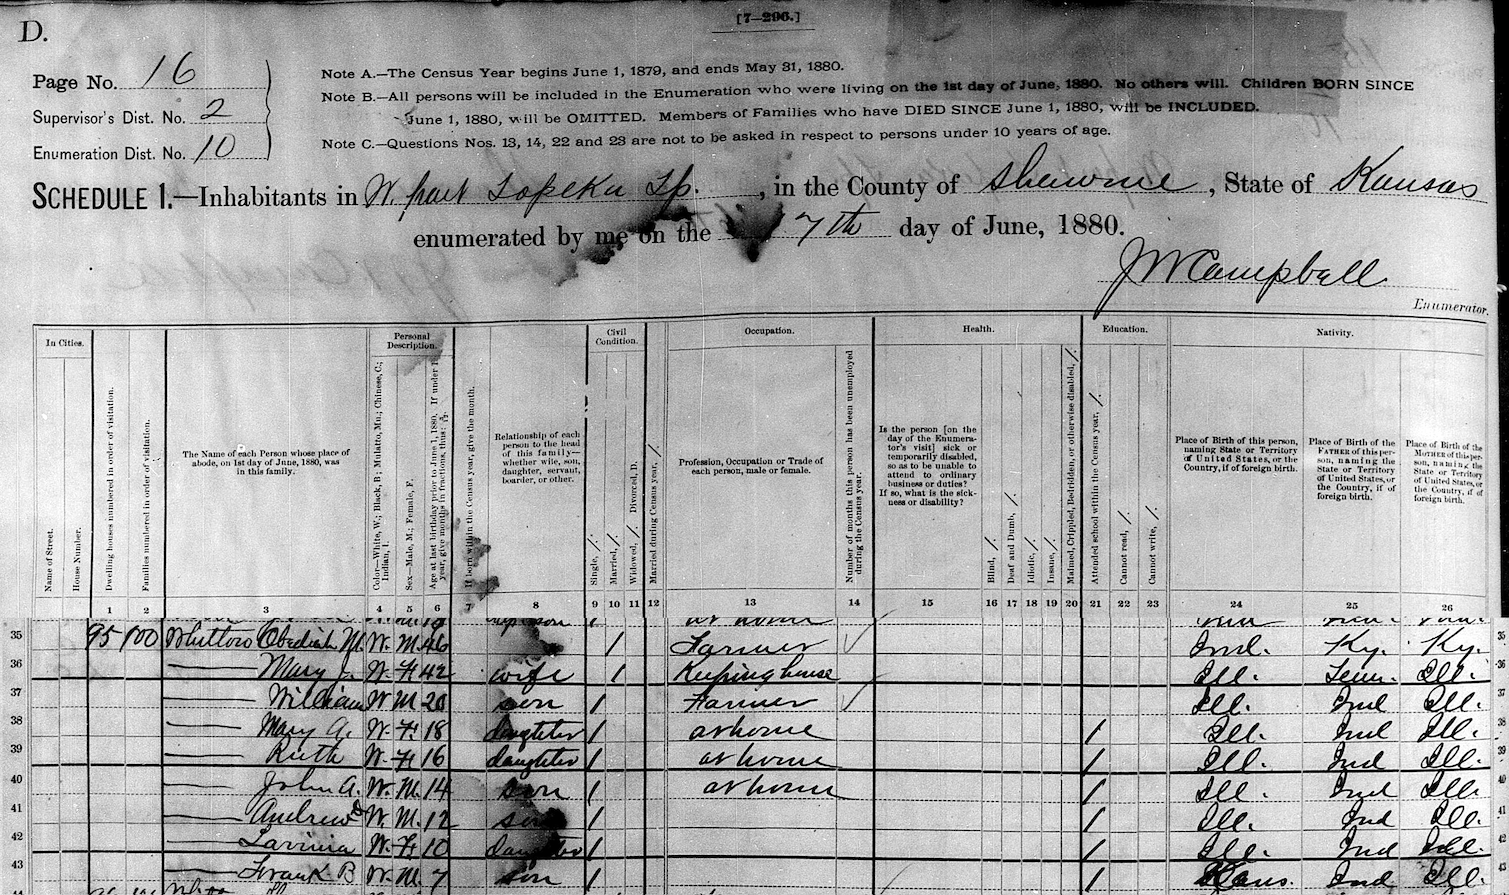 D.
[7—296.]
Page No. 16
Supervisor's Dist. No. 2
Enumeration Dist. No. 10
Note A.—The Census Year begins June 1, 1879, and ends May 31, 1880.
Note B.—All persons will be included in the Enumeration who were living on the 1st day of June, 1880. No others will. Children BORN SINCE
June 1, 1880, will be OMITTED. Members of Families who have DIED SINCE June 1, 1880, will be INCLUDED.
Note C.—Questions Nos. 13, 14, 22 and 23 are not to be asked in respect to persons under 10 years of age.
SCHEDULE 1.—Inhabitants in W. part Topeka Tp., in the County of Shawnee, State of Kansas
enumerated by me on the 7th day of June, 1880.
J W Campbell
Enumerator.
In Cities.
Name of Street.
House Number.
Dwelling houses numbered in order of visitation.
Families numbered in order of visitation.
The Name of each Person whose place of
abode, on 1st day of June, 1880, was
in this family.
Personal
Description.
Color—White, W.; Black, B.; Mulatto, Mu.; Chinese, C.;
Indian, I.
Sex—Male, M.; Female, F.
Age at last birthday prior to June 1, 1880. If under 1
year, give months in fractions, thus: 3/12.
If born within the Census year, give the month.
Relationship of each
person to the head
of this family—
whether wife, son,
daughter, servant,
boarder, or other.
Civil
Condition.
Single, /.
Married, /.
Widowed, /. Divorced, D.
Married during Census year, /.
Occupation.
Profession, Occupation or Trade of
each person, male or female.
Number of months this person has been unemployed
during the Census year.
Health.
Is the person [on the
day of the Enumera-
tor's visit] sick or
temporarily disabled,
so as to be unable to
attend to ordinary
business or duties?
If so, what is the sick-
ness or disability?
Blind, /.
Deaf and Dumb, /.
Idiotic, /.
Insane, /.
Maimed, Crippled, Bedridden, or otherwise disabled, /.
Education.
Attended school within the Census year, /.
Cannot read, /.
Cannot write, /.
Nativity.
Place of Birth of this person,
naming State or Territory
of United States, or the
Country, if of foreign birth.
Place of Birth of the
FATHER of this per-
son, naming the
State or Territory
of United States, or
the Country, if of
foreign birth.
Place of Birth of the
MOTHER of this per-
son, naming the
State or Territory
of United States, or
the Country, if of
foreign birth.
1 2 3 4 5 6 7 8 9 10 11 12 13 14 15 16 17 18 19 20 21 22 23 24 25 26
35 95 100 Obediah M. W. M. 46 / Farmer Ind. Ky. Ky. 35
36 — Mary J. W. F 42 wife / Keeping house Ill. Tenn. Ill. 36
37 — William W M 20 son / Farmer Ill. Ind Ill. 37
38 — Mary A. W. F 18 daughter / at home / Ill. Ind Ill. 38
39 — Ruth W. F 16 daughter / at home / Ill. Ind Ill. 39
40 — John A. W. M. 14 son / at home / Ill. Ind Ill. 40
41 — Andrew W. M. 12 son / / Ill. Ind Ill. 41
42 — Lavinia W. F 10 daughter / / Ill. Ind Ill. 42
43 — Frank B W. M. 7 son / / Kans. Ind Ill. 43